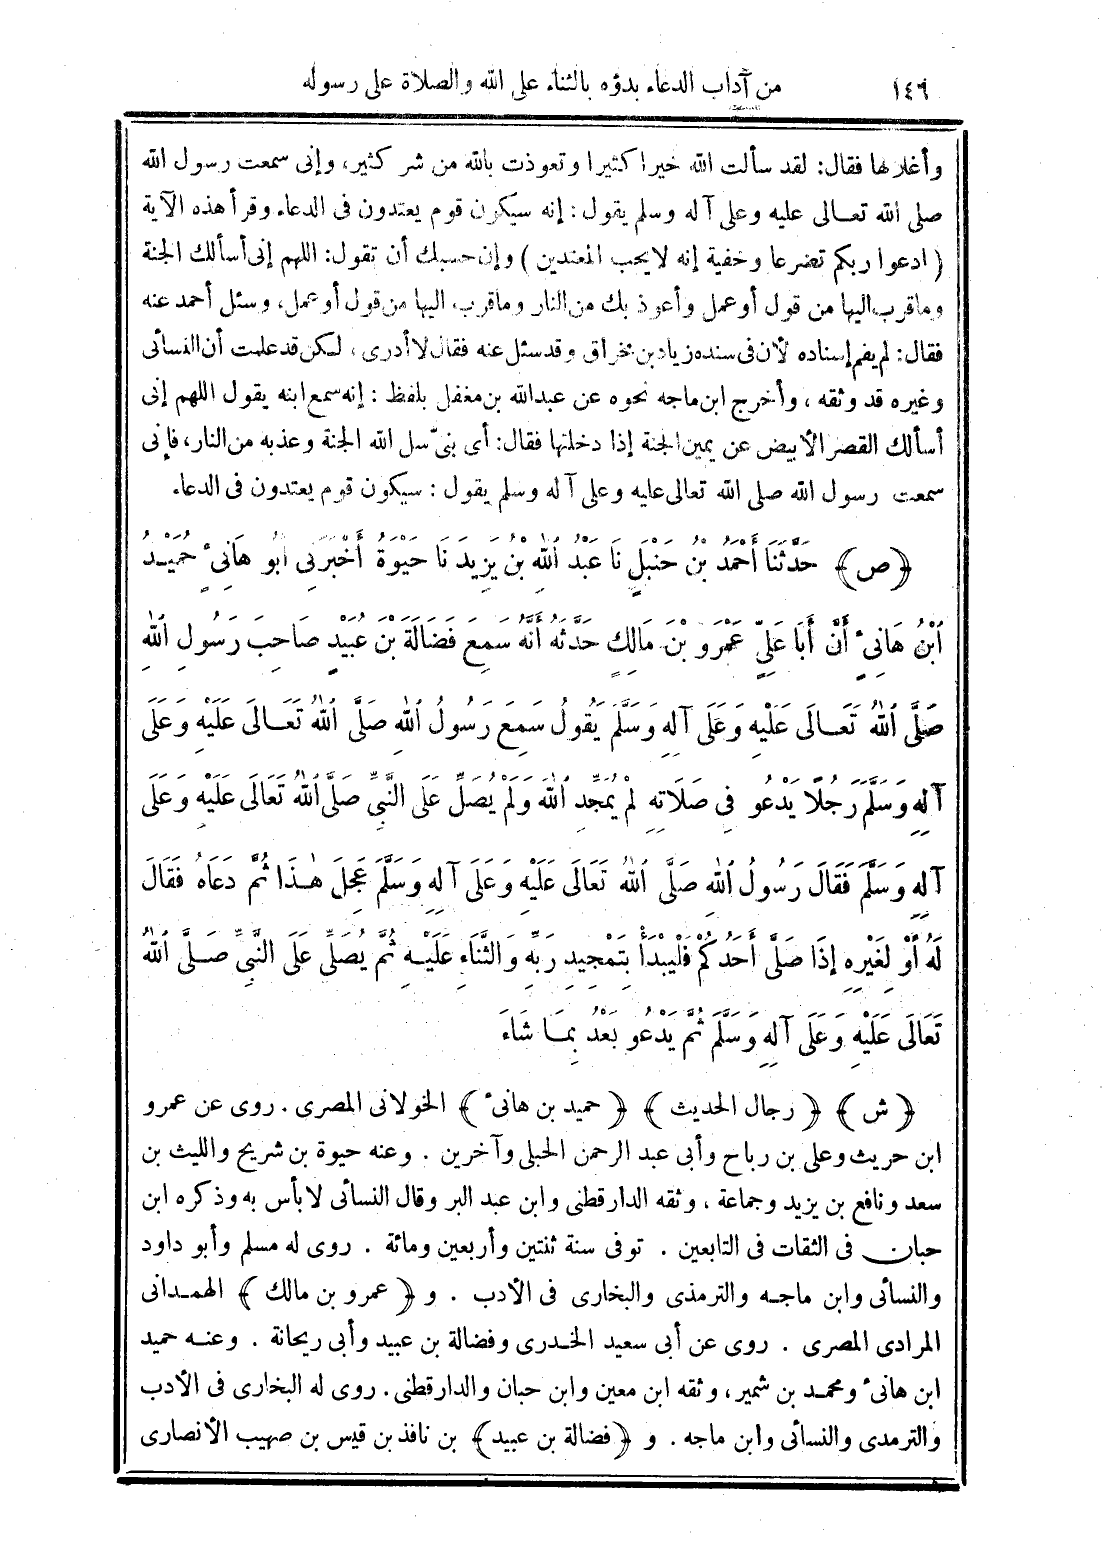 ١٤٦ من آداب الدعاء بدؤه بالثناء على الله والصلاة على رسوله
وأغلالها فقال: لقد سألت الله خيرا كثيرا وتعوذت بالله من شر كثير، وإنى سمعت رسول الله
صلى الله تعالى عليه وعلى آله وسلم يقول: إنه سيكون قوم يعتدون فى الدعاء وقرأ هذه الآية
(ادعوا ربكم تضرعا وخفية إنه لايحب المعتدين) وإن حسبك أن تقول: اللهم إنى أسألك الجنة
وماقرب اليها من قول أوعمل وأعوذ بك من النار وماقرب اليها من قول أوعمل، وسئل أحمد عنه
فقال: لم يقم إسناده لأن فى سنده زياد بن مخراق وقد سئل عنه فقال لاأدرى، لكن قد علمت أن النسائى
وغيره قد وثقه، وأخرج ابن ماجه نحوه عن عبدالله بن مغفل بلفظ: إنه سمع ابنه يقول اللهم إنى
أسألك القصر الأبيض عن يمين الجنة إذا دخلتها فقال: أى بنىّ سل الله الجنة وعذبه من النار، فإنى
سمعت رسول الله صلى الله تعالى عليه وعلى آله وسلم يقول: سيكون قوم يعتدون فى الدعاء.
﴿ص﴾ حَدَّثَنَا أَحْمَدُ بْنُ حَنْبَلٍ نَا عَبْدُ اللهِ بْنُ يَزِيدَ نَا حَيْوَةُ أَخْبَرَنِى أَبُو هَانِىءٍ حُمَيْدُ
ابْنُ هَانِىءٍ أَنَّ أَبَا عَلِىٍّ عَمْرَو بْنَ مَالِكٍ حَدَّثَهُ أَنَّهُ سَمِعَ فَضَالَةَ بْنَ عُبَيْدٍ صَاحِبَ رَسُولِ اللهِ
صَلَّى اللهُ تَعَالَى عَلَيْهِ وَعَلَى آلِهِ وَسَلَّمَ يَقُولُ سَمِعَ رَسُولُ اللهِ صَلَّى اللهُ تَعَالَى عَلَيْهِ وَعَلَى
آلِهِ وَسَلَّمَ رَجُلًا يَدْعُو فِى صَلَاتِهِ لَمْ يُمَجِّدِ اللهَ وَلَمْ يُصَلِّ عَلَى النَّبِىِّ صَلَّى اللهُ تَعَالَى عَلَيْهِ وَعَلَى
آلِهِ وَسَلَّمَ فَقَالَ رَسُولُ اللهِ صَلَّى اللهُ تَعَالَى عَلَيْهِ وَعَلَى آلِهِ وَسَلَّمَ عَجِلَ هٰذَا ثُمَّ دَعَاهُ فَقَالَ
لَهُ أَوْ لِغَيْرِهِ إِذَا صَلَّى أَحَدُكُمْ فَلْيَبْدَأْ بِتَمْجِيدِ رَبِّهِ وَالثَّنَاءِ عَلَيْهِ ثُمَّ يُصَلِّى عَلَى النَّبِىِّ صَلَّى اللهُ
تَعَالَى عَلَيْهِ وَعَلَى آلِهِ وَسَلَّمَ ثُمَّ يَدْعُو بَعْدُ بِمَا شَاءَ
﴿ش﴾ ﴿رجال الحديث﴾ ﴿حميد بن هانىء﴾ الخولانى المصرى. روى عن عمرو
ابن حريث وعلى بن رباح وأبى عبد الرحمن الحبلى وآخرين. وعنه حيوة بن شريح والليث بن
سعد ونافع بن يزيد وجماعة، وثقه الدارقطنى وابن عبد البر وقال النسائى لا بأس به وذكره ابن
حبان فى الثقات فى التابعين. توفى سنة ثنتين وأربعين ومائة. روى له مسلم وأبو داود
والنسائى وابن ماجه والترمذى والبخارى فى الأدب. و ﴿عمرو بن مالك﴾ الهمدانى
المرادى المصرى. روى عن أبى سعيد الخدرى وفضالة بن عبيد وأبى ريحانة. وعنه حميد
ابن هانىء ومحمد بن شمير، وثقه ابن معين وابن حبان والدارقطنى. روى له البخارى فى الأدب
والترمذى والنسائى وابن ماجه. و ﴿فضالة بن عبيد﴾ بن نافذ بن قيس بن صهيب الأنصارى